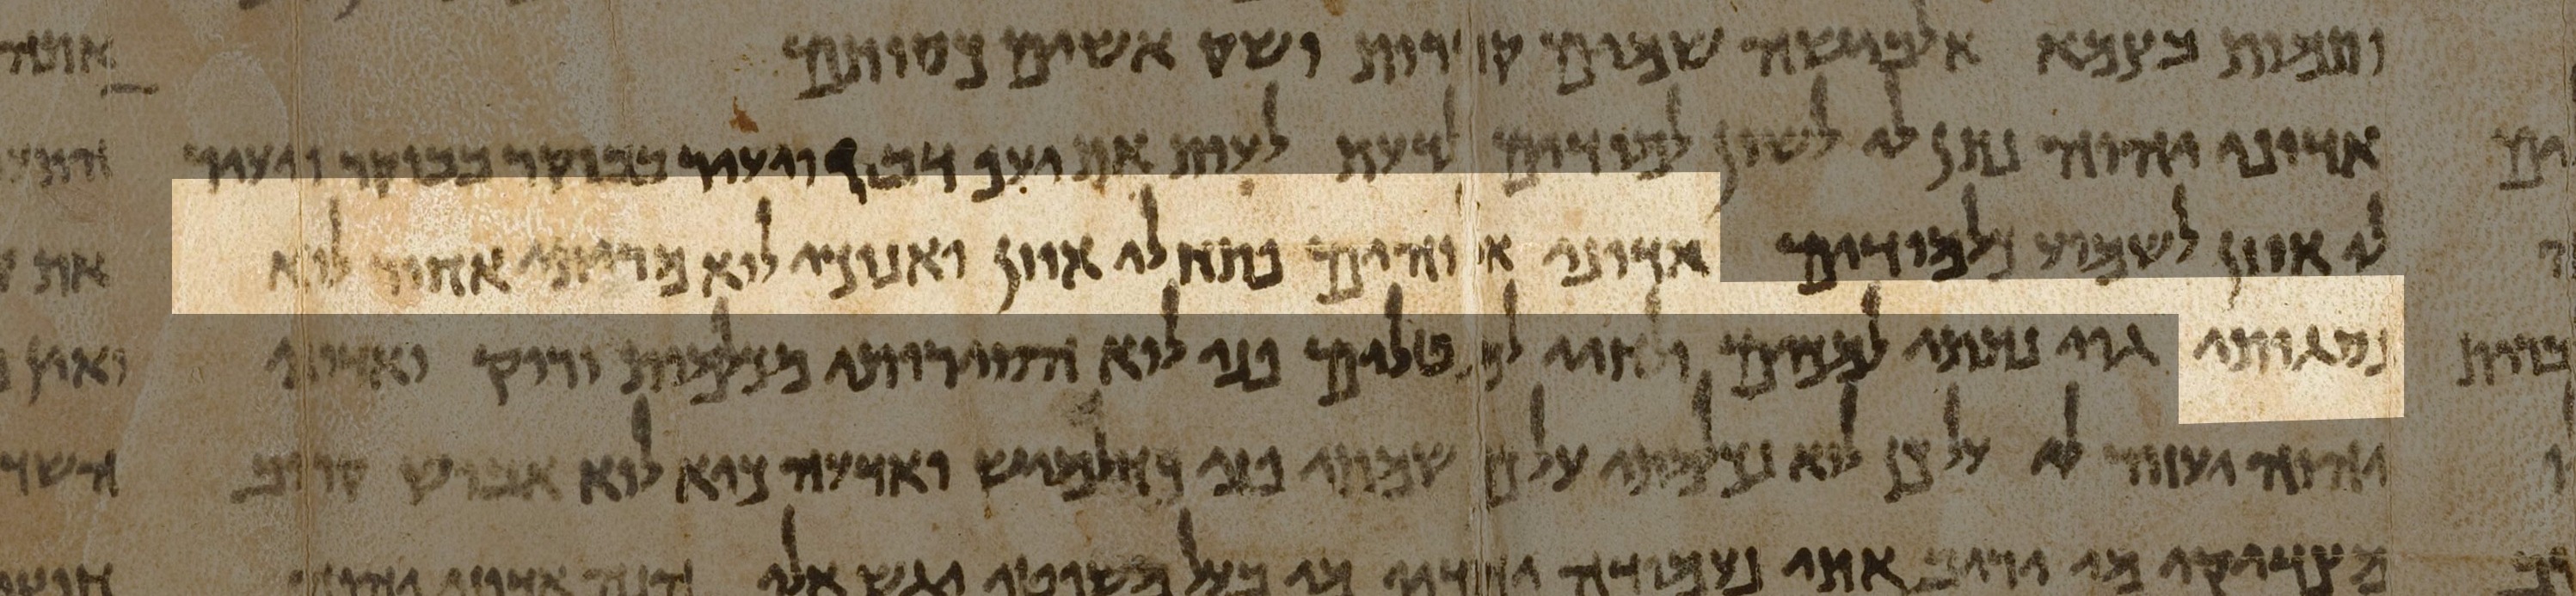 ותמות בצמא אלבישה שמים קדרות ושק אשים כסותם
אדוני יהוה נתן לי לשון למודים לדעת לעות את יעף דבר ויעיר בבוקר בבוקר ויעיר
לי אוזן לשמוע כלמודים אדוני אלוהים פתח לי אוזן ואנוכי לוא מריתי אחור לוא
נסגותי גוי נתתי למכים ולחיי למטלים פני לוא הסירותי מכלמות ורוק ואדוני
יהוה יעזור לי על כן לוא נכלמתי על כן שמתי פני כחלמיש ואדעה כיא לוא אבוש קרוב
מצדיקי מי יריב אתי נעמודה יחדיו מי בעל משפטי יגש אלי הנה אדוני יהוה